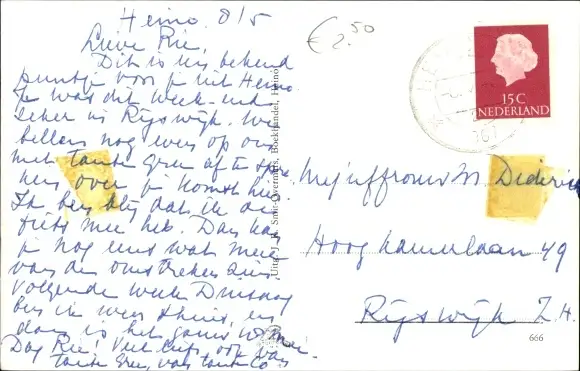 Heino. 8/5
Lieve Rie,
Dit is een bekend
puntje voor je uit Heino
Je was dit week-end
zeker in Rijswijk. We
bellen nog even op om
met tante Gree af te spre
ken over je komst hier.
Ik ben blij dat ik de
fiets mee heb. Dan kan
je nog eens wat meer
van de omstreken zien.
Volgende week Dinsdag
ben ik weer thuis, en
dan is het
Dag Rie! Veel liefs ook van
tante Gree, van tante Co
€ 2.50
15 C
NEDERLAND
Uitg. J. H. Smit-Overmars, Boekhandel, Heino
Mejuffrouw M. Diderich
Hooghkamerlaan 49
Rijswijk Z.H.
666